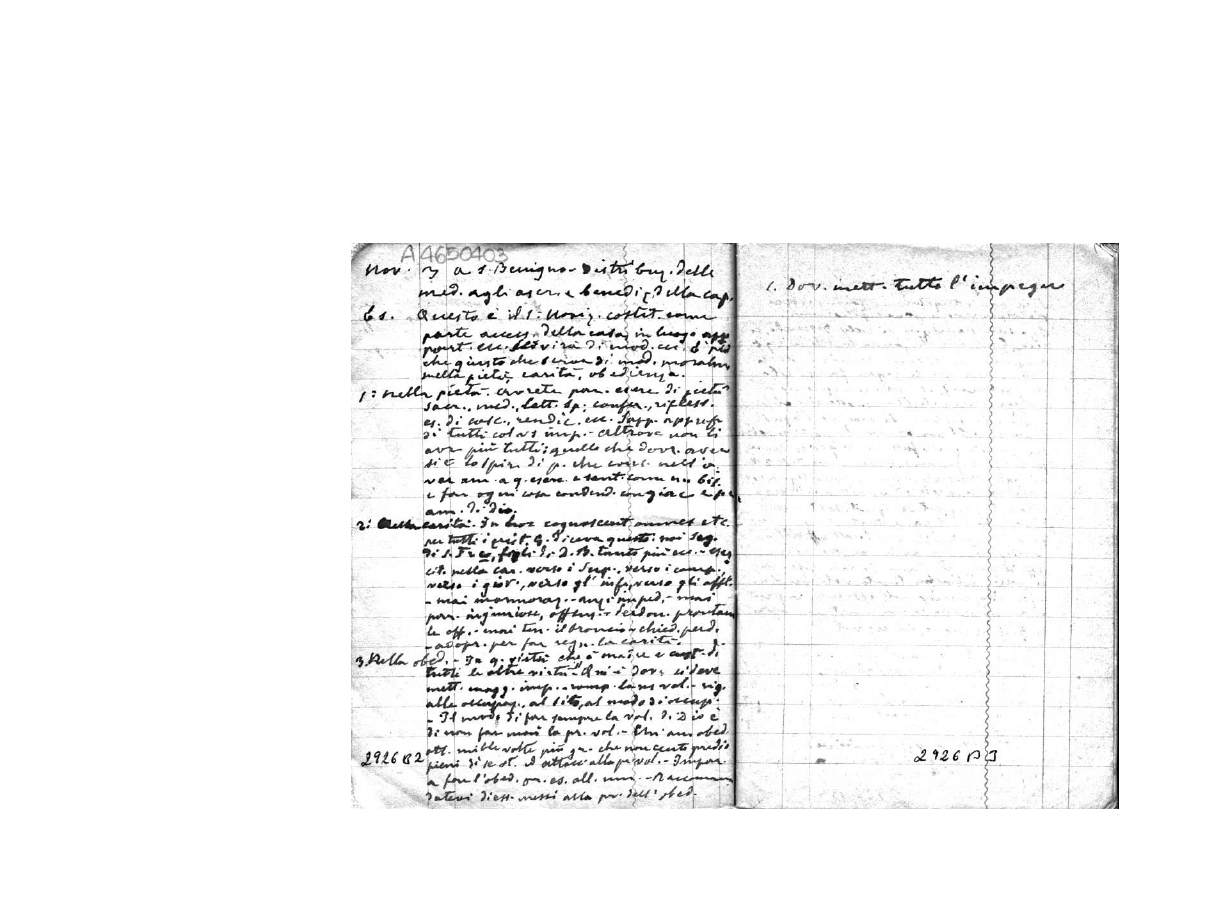 A4650403
Nov. 3 a S. Benigno - Distribuz. delle
med. agli ascr. e benediz. della cap.
Es. Questo è il S. Noviz. costit. come
parte access. della casa, in luogo app
part. ecc. servirà di mod. ecc. E più
che giusto che serva di mod. moralm
nella pietà, carità, obedienza.
1: nella pietà. avrete par. eserc. di pietà
sacr., med., lett. sp., confer., rifless.
es. di cosc., rendic. ecc. Sapp. approfi
di tutti col a s imp. - altrove non li
avr. più tutti; quello che dovr. aver
si è lo spir. di p. che cons. nell' a
ver am. a q. eserc. e sent. come un bis.
e far ogni cosa condend. con giac. e per
am. di Dio.
2: Nella carità. In hoc cognoscent omnes etc.
per tutti i crist. G. diceva questo: noi Seg.
di S. Fco, figli di D. B. tanto più ecc. - Eser
cit. nella car. verso i Sup., verso i comp.,
verso i giov., verso gl' inf., verso gli affl.
- mai mormoraz. - anzi imped. - mai
par. ingiuriose, offens. - Perdon. prontam
le off. - mai ten. il broncio - chied. perd.
- adopr. per far regn. la carità.
3. Nella obed. - In q. virtù che è madre e cust. di
tutti le altre virtù - Qui è dov. si deve
mett. magg. imp. - romp. la ns vol. - rig.
alle occupaz., al sito, al modo di occup.
- Il modo di far sempre la vol. di Dio è
di non far mai la pr. vol. - Chi am. obed.
ott. mille volte più gr. che non cento
pieni di se st. ed attacc. alla pr. vol. - Impar
a fare l'obed. or. es. all. um. - Raccoman
datevi di ess. messi alla pr. dell' obed.
2926 B2
1. Dov. mett. tutto l'impegno
2926 B3